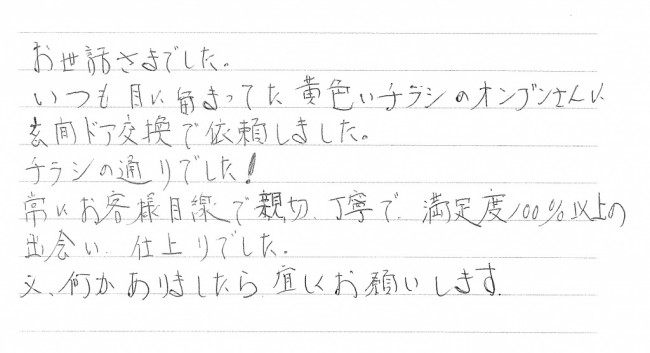 お世話さまでした。
いつも目に留まってた黄色いチラシのオンブンさんに
玄関ドア交換で依頼しました。
チラシの通りでした!
常にお客様目線で親切、丁寧で、満足度100%以上の
出会い、仕上りでした。
又、何かありましたら宜しくお願いします。